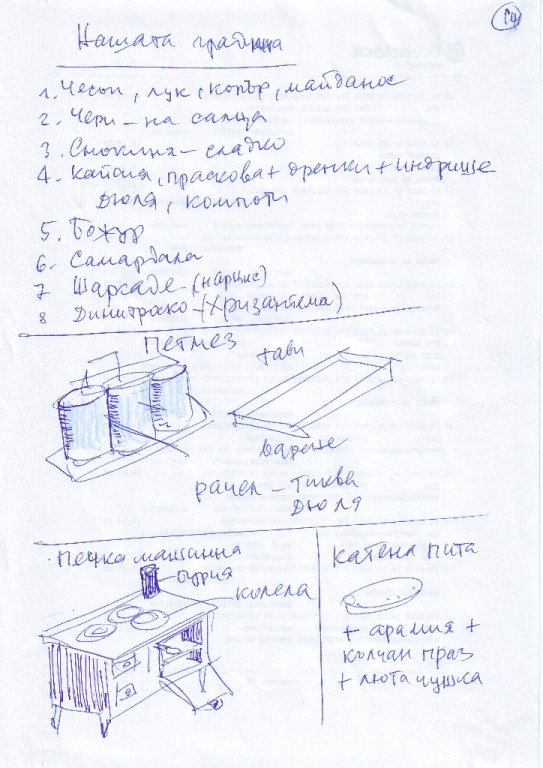 14
Нашата градина
1. Чесън, лук, копър, майданос
2. Чери – на салца
3. Смокиня – сладко
4. Кайсия, праскова + дренки + индрише
Дюля, компоти
5. Божур
6. Самардала
7 Шаркаде – (нарцис)
8 Димитроско – (Хризантема)
Петмез
тави
варене
рачел – тиква
дюля
Печка машинна
бурия
колела
катена пита
+ арамия +
колчан праз
+ люта чушка